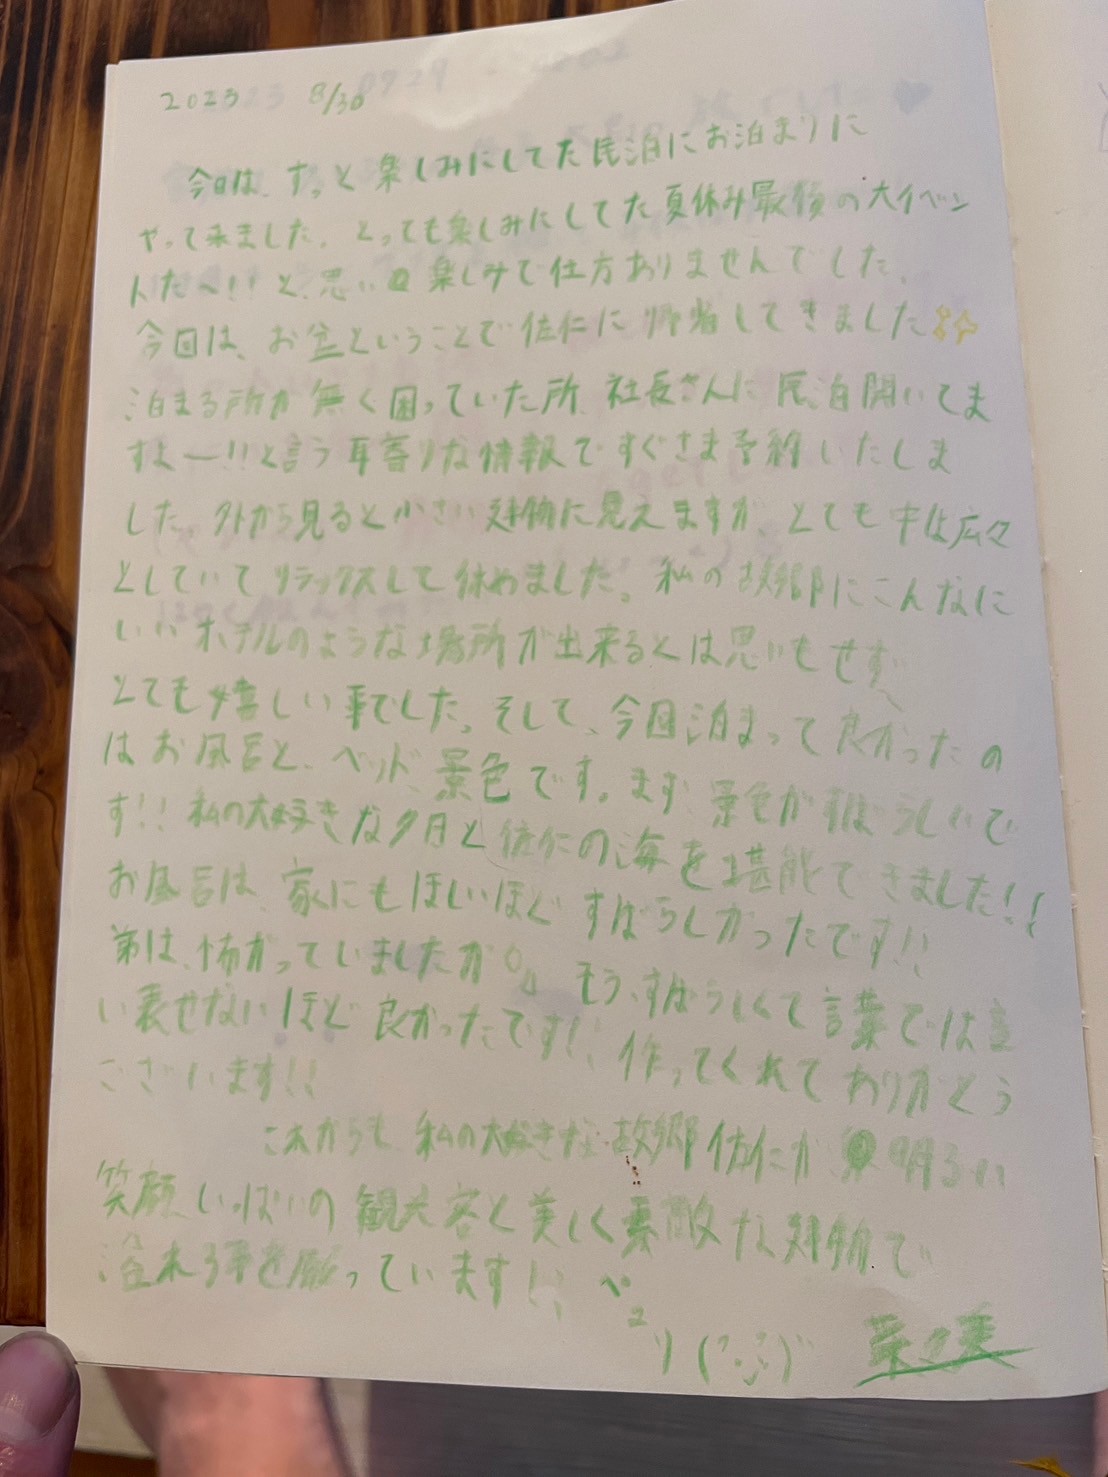 2023 8/30
今日は、ずっと楽しみにしてた民泊にお泊まりに
やって来ました。とっても楽しみにしてた夏休み最後の大イベン
トだ〜!!と、思い 楽しみで仕方ありませんでした。
今回は、お盆ということで佐仁に帰省してきました
泊まる所が無く困っていた所、社長さんに民泊開いてま
すよー!!と言う耳寄りな情報ですぐさま予約いたしま
した。外から見ると小さい建物に見えますが、とても中は広々
としていてリラックスして休めました。私の故郷にこんなに
いいホテルのような場所が出来るとは思いもせず、
とても嬉しい事でした。そして、今回泊まって良かったの
はお風呂と、ベッド、景色です。まず、景色がすばらしいで
す!!私の大好きな夕日と佐仁の海を堪能できました!!
お風呂は、家にもほしいほどすばらしかったです!!
弟は、怖がっていましたが。もう、すばらしくて言葉では言
い表せないほど良かったです!!作ってくれてありがとう
ございます!!
これからも、私の大好きな故郷佐仁が 明るい
笑顔いっぱいの観光客と美しく素敵な建物で
溢れる事を願っています!!ペコ
リ
菜々美